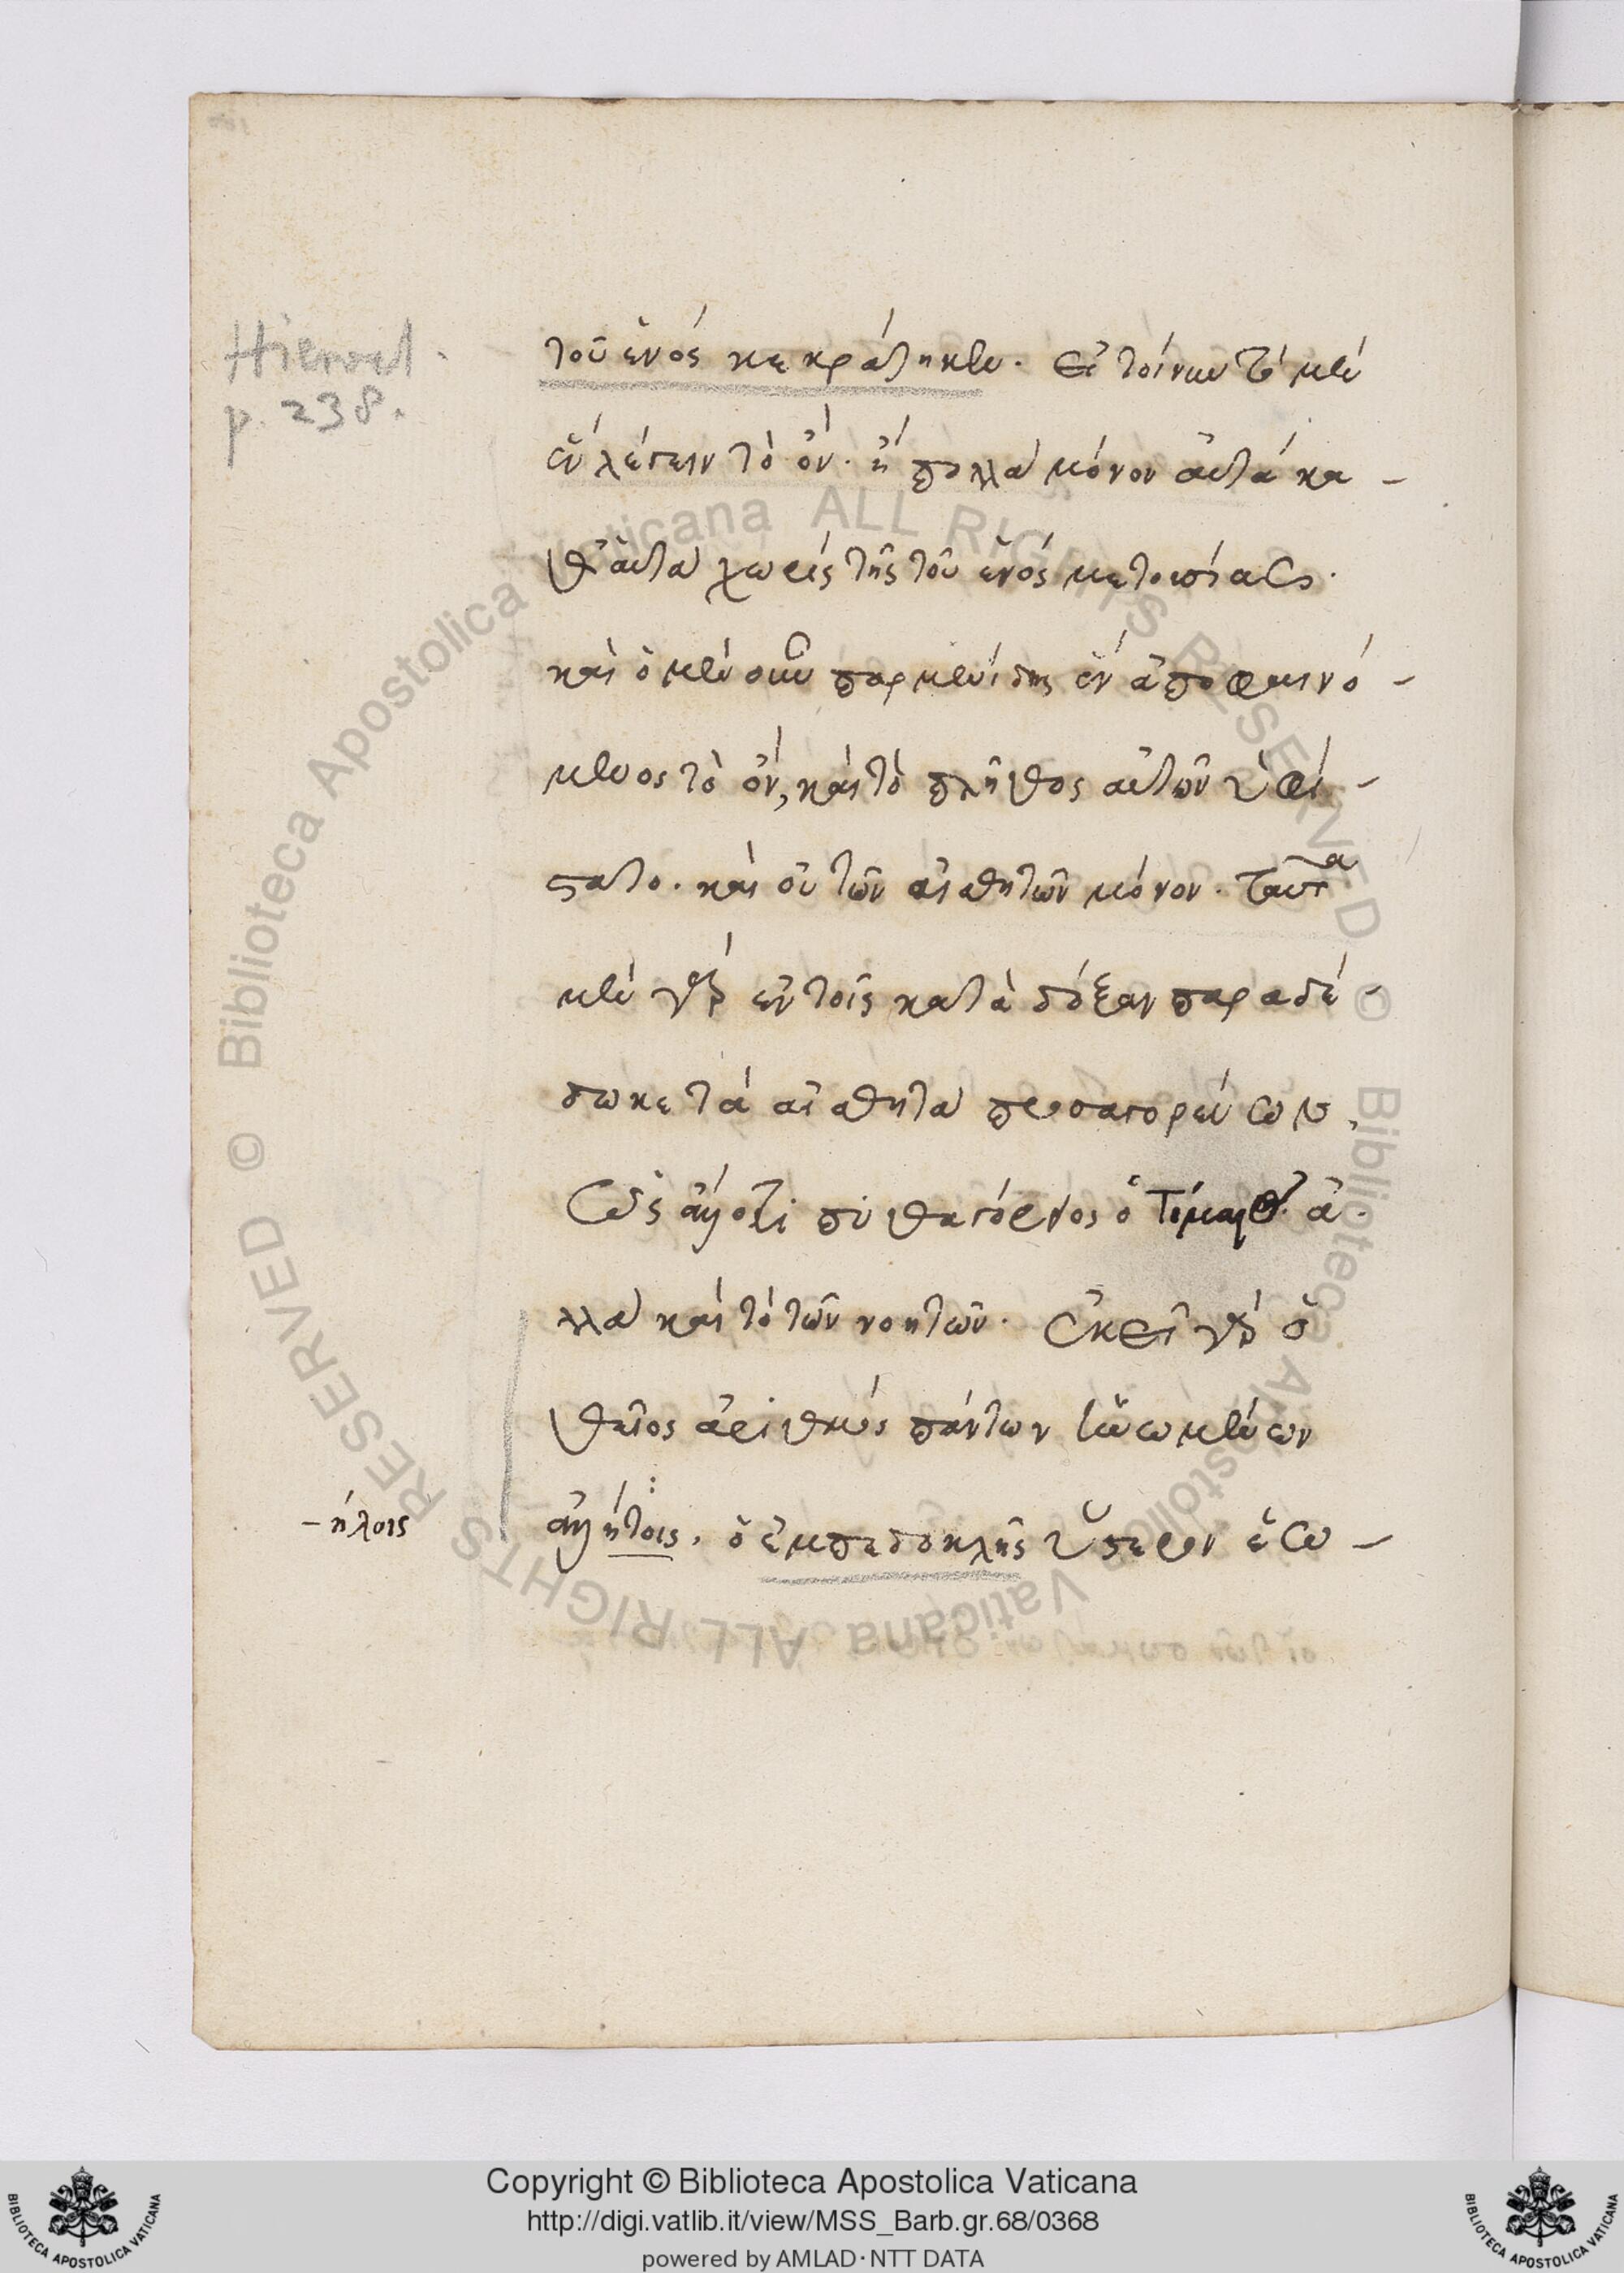 Hierocl.
p. 238.
τοῦ ἑνὸς κεκράτηκεν. εἰ τοίνυν τὸ μὲν
ἓν λέγειν τὸ ὄν. ἢ πολλὰ μόνον αὐτὰ κα-
θ' αὑτὰ χωρὶς τῆς τοῦ ἑνὸς μετουσίας.
καὶ ὁ μὲν οὖν παρμενίδης ἓν ἀποφαινό-
μενος τὸ ὄν, καὶ τὸ πλῆθος αὐτῶν ὑφί-
στατο. καὶ οὐ τῶν αἰσθητῶν μόνον. ταῦτα
μὲν γὰρ ἐν τοῖς κατὰ δόξαν παραδέ-
δωκε τὰ αἰσθητὰ προσαγορεύων,
ὡς ἂν ὅτι πυθαγόρειος ὁ Τίμαιος. ἀ-
λλὰ καὶ τὸ τῶν νοητῶν. ἐκεῖ γὰρ ὁ
θεῖος ἀριθμὸς πάντων ἑνωμένων
-ήλοις
ἀλλήτοις. ὁ ἐμπεδοκλῆς ὕστερον ἑω-
Copyright © Biblioteca Apostolica Vaticana
http://digi.vatlib.it/view/MSS_Barb.gr.68/0368
powered by AMLAD·NTT DATA
BIBLIOTECA APOSTOLICA VATICANA
BIBLIOTECA APOSTOLICA VATICANA
© Biblioteca Apostolica Vaticana ALL RIGHTS RESERVED
© Biblioteca Apostolica Vaticana ALL RIGHTS RESERVED